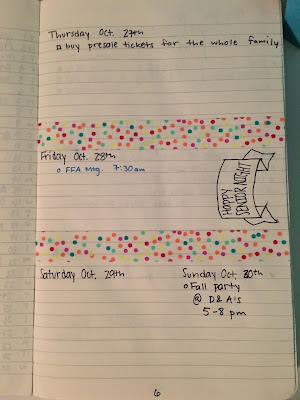 Thursday Oct. 27th
buy presale tickets for the whole family
Friday Oct. 28th
FFA Mtg. 7:30am
HAPPY
SENIOR NIGHT
Saturday Oct. 29th
Sunday Oct. 30th
Fall party
@ D&A's
5-8 pm
6